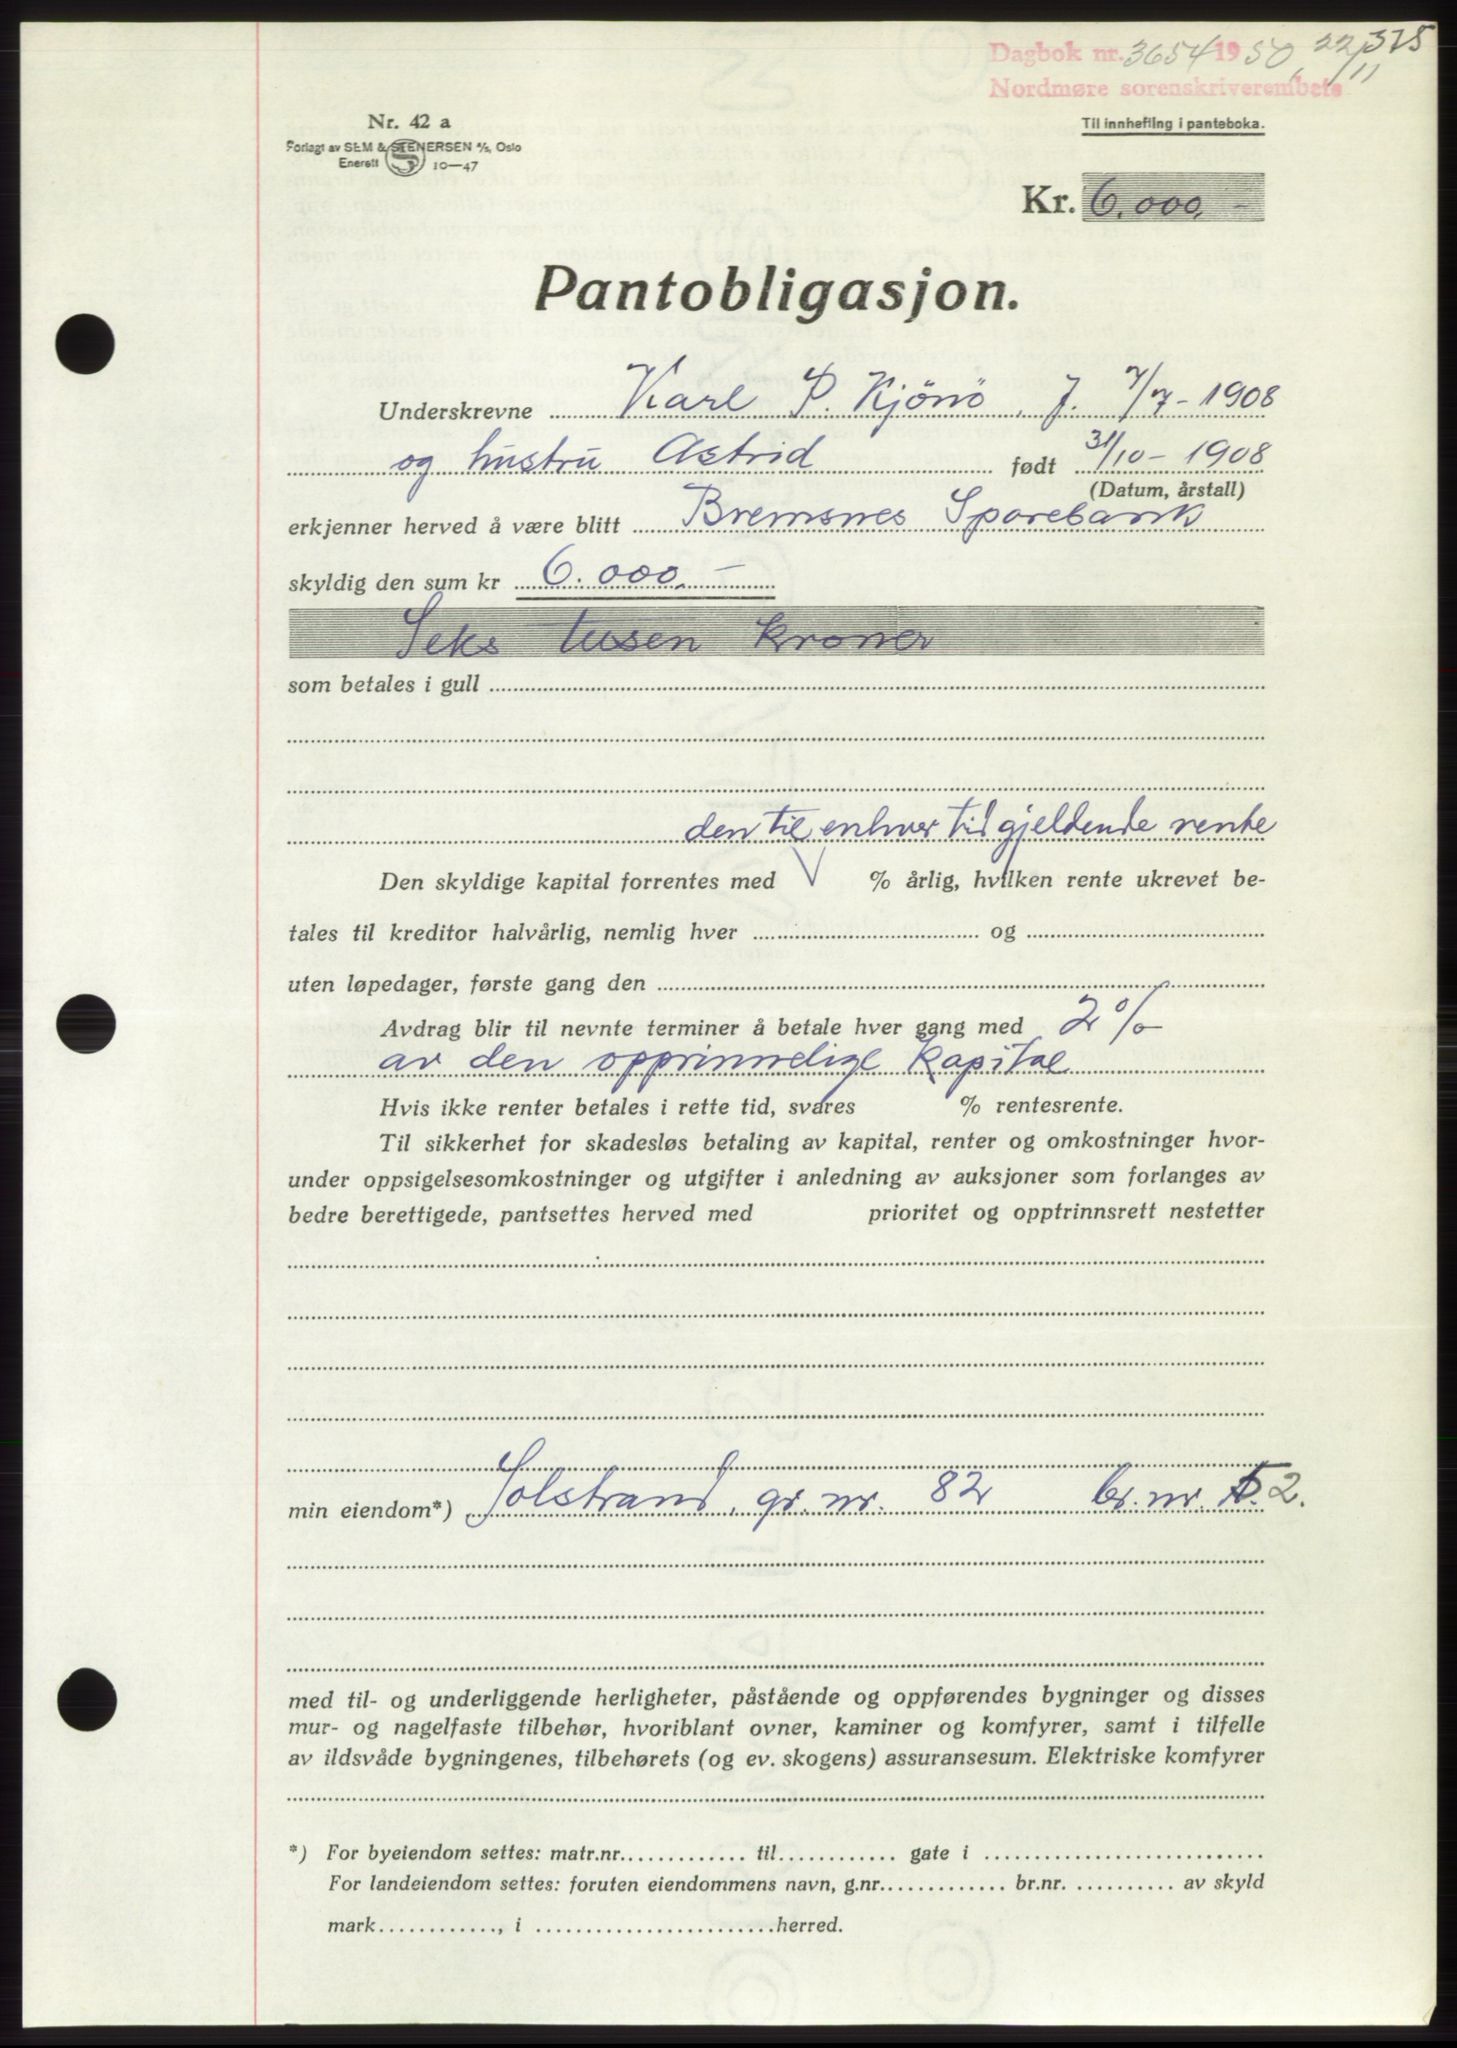 375
Dagbok nr. 3654 1950, 22/11
Nordmøre sorenskriverembete
Nr. 42 a
Til innhefting i panteboka.
Forlagt av SEM & STENERSEN A/S, Oslo
Enerett S 10—47
Kr. 6.000,-
Pantobligasjon.
Underskrevne Karl P. Kjönö, f. 7/7-1908
og hustru Astrid født 31/10-1908
(Datum, årstall)
erkjenner herved å være blitt Bremsnes Sparebank
skyldig den sum kr 6.000,-
Seks tusen kroner
som betales i gull
den til enhver tid gjeldende rente
Den skyldige kapital forrentes med % årlig, hvilken rente ukrevet be-
tales til kreditor halvårlig, nemlig hver og
uten løpedager, første gang den
Avdrag blir til nevnte terminer å betale hver gang med 2%
av den opprinnelige kapital
Hvis ikke renter betales i rette tid, svares % rentesrente.
Til sikkerhet for skadesløs betaling av kapital, renter og omkostninger hvor-
under oppsigelsesomkostninger og utgifter i anledning av auksjoner som forlanges av
bedre berettigede, pantsettes herved med prioritet og opptrinnsrett nestetter
min eiendom*) Solstrand, gr. nr. 82 br. nr. 52.
med til- og underliggende herligheter, påstående og oppførendes bygninger og disses
mur- og nagelfaste tilbehør, hvoriblant ovner, kaminer og komfyrer, samt i tilfelle
av ildsvåde bygningenes, tilbehørets (og ev. skogens) assuransesum. Elektriske komfyrer
*) For byeiendom settes: matr.nr. til gate i
For landeiendom settes: foruten eiendommens navn, g.nr. br.nr. av skyld
mark , i herred.